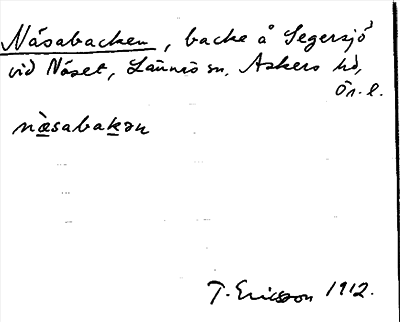 Näsabacken, backe å Segersjö
vid Näset, Lännäs sn, Askers hd,
Ör. l.
nä̀sabakən
T. Ericsson 1912.